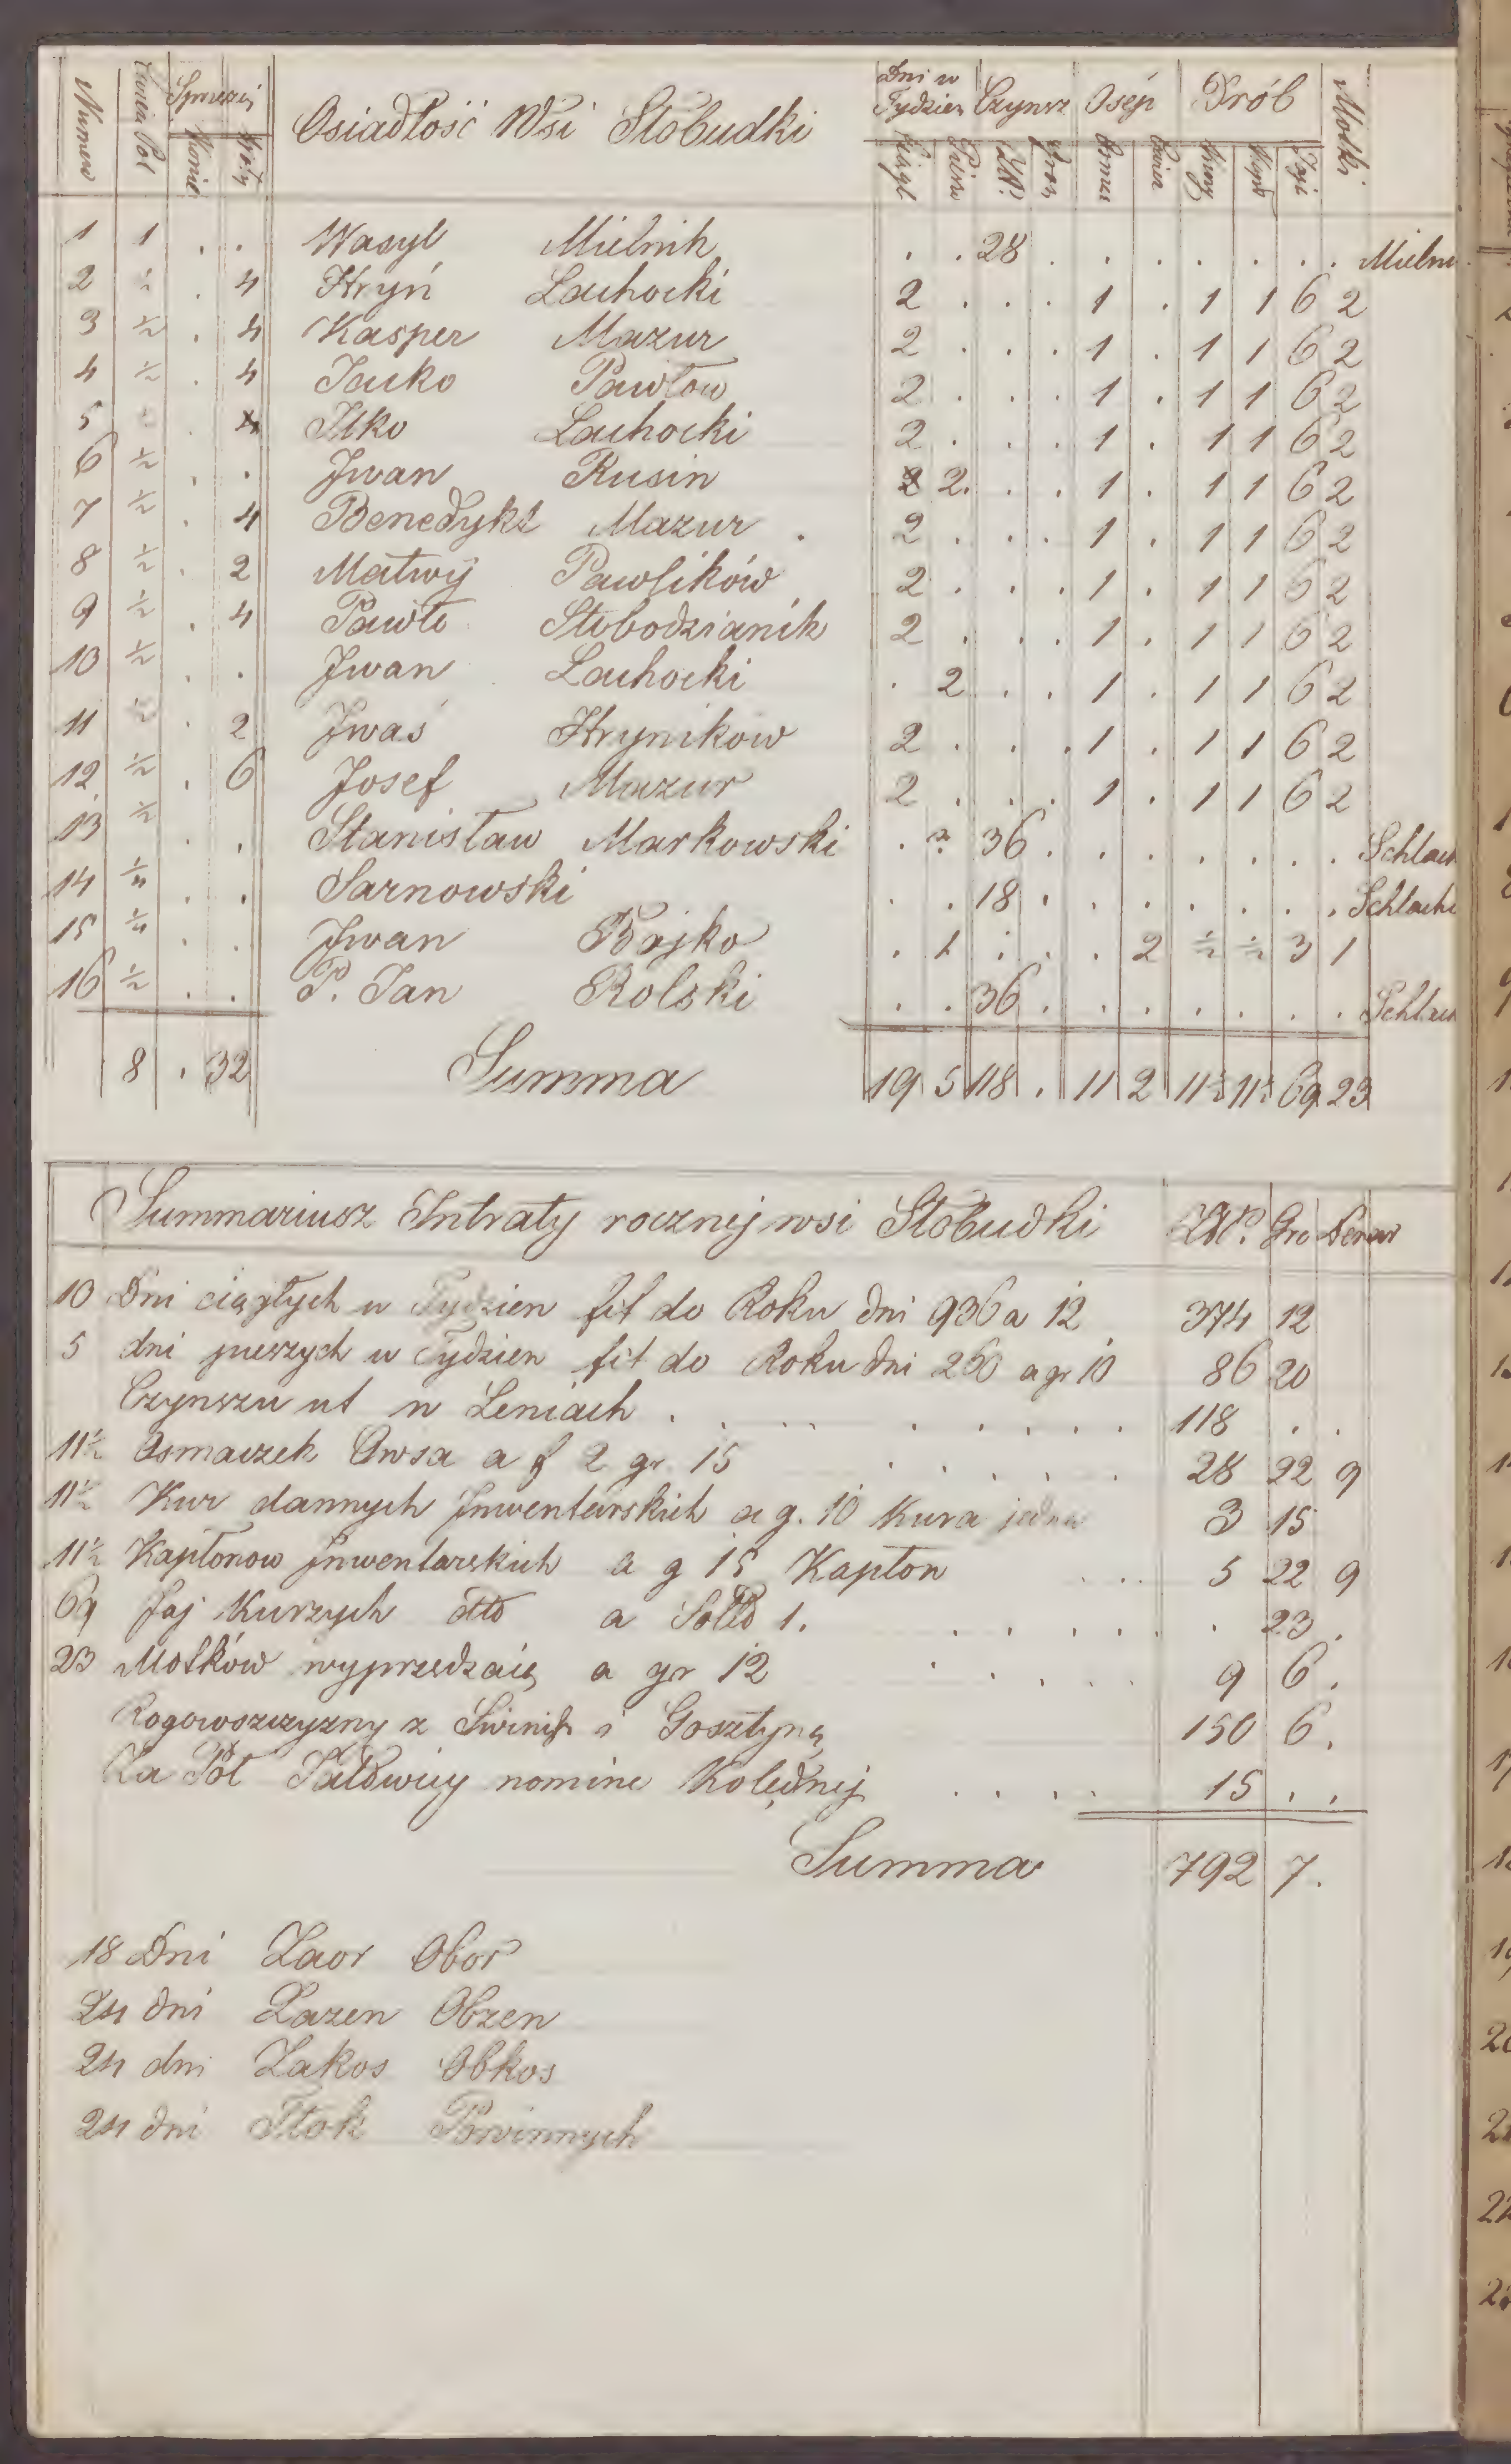 Numero Ćwierci Pol Sprzężaj Osiadłość Wsi Słobudki Dni w Tydzień Czynsz Osęp Drób Motki
Konie Woły Ciągł Piesze Złp. Grosz Kury Kapł Jaj
1 1 . . Wasyl Mielnik . . 28 . . . . . . . Mieln
2 ½ . 4 Hryń Lachocki 2 . . . 1 . 1 1 6 2
3 ½ . 4 Kasper Mazur 2 . . . 1 . 1 1 6 2
4 ½ . 4 Jacko Pawłow 2 . . . 1 . 1 1 6 2
5 ½ . 4 Ilko Lachocki 2 . . . 1 . 1 1 6 2
6 ½ . . Jwan Rusin 2 2 . . 1 . 1 1 6 2
7 ½ . 4 Benedykt Mazur . 2 . . . 1 . 1 1 6 2
8 ½ . 2 Matwij Pawlików 2 . . . 1 . 1 1 6 2
9 ½ . 4 Pawło Słobodzianik 2 . . . 1 . 1 1 6 2
10 ½ . . Jwan Lachocki . 2 . . 1 . 1 1 6 2
11 ½ . 2 Jwaś Hryników 2 . . . 1 . 1 1 6 2
12 ½ . 6 Josef Mazur 2 . . . 1 . 1 1 6 2
13 ½ . . Stanisław Markowski . 36 . . . . . . . Schlach
14 ¼ . . Sarnowski . . 18 . . . . . . . Schlach
15 ¼ . . Jwan Bojko . 1 . . . 2 ½ ½ 3 1
16 ½ . . P. Jan Rolski . . 36 . . . . . . . Schlach
8 . 32 Summa 19 5 118 . 11 2 11½ 11½ 69 23
Summariusz Intraty rocznej wsi Słobudki Złp. Gro Denar
10 Dni ciągłych w Tydzien fit do Roku dni 936 a 12 374 12
5 dni pieszych w Tydzien fit do Roku dni 260 a gr 10 86 20
Czynszu ut w Leniach . . . . . . . . 118 . .
11½ Osmaczek Owsa a f 2 gr. 15 . . . . . 28 22 9
11½ Kur dannych Jnwentarskich a g. 10 Kura jedna 3 15
11½ Kapłonow Jnwentarskich a g 15 Kapłon . . . 5 22 9
69 Jaj Kurzych dtto a Solid 1. . . . . . . 23 .
23 Motków wyprzedzaią a gr 12 . . . . . 9 6 .
Rogowszczyzny z i Gosztyną 150 6 .
Za Poł nomine Kolędnej . . . . 15 . .
Summa 792 7 .
18 Dni Zaor Obor
24 dni Zazen Obzen
24 dni Zakos Obkos
24 dni Tłok Powinnych